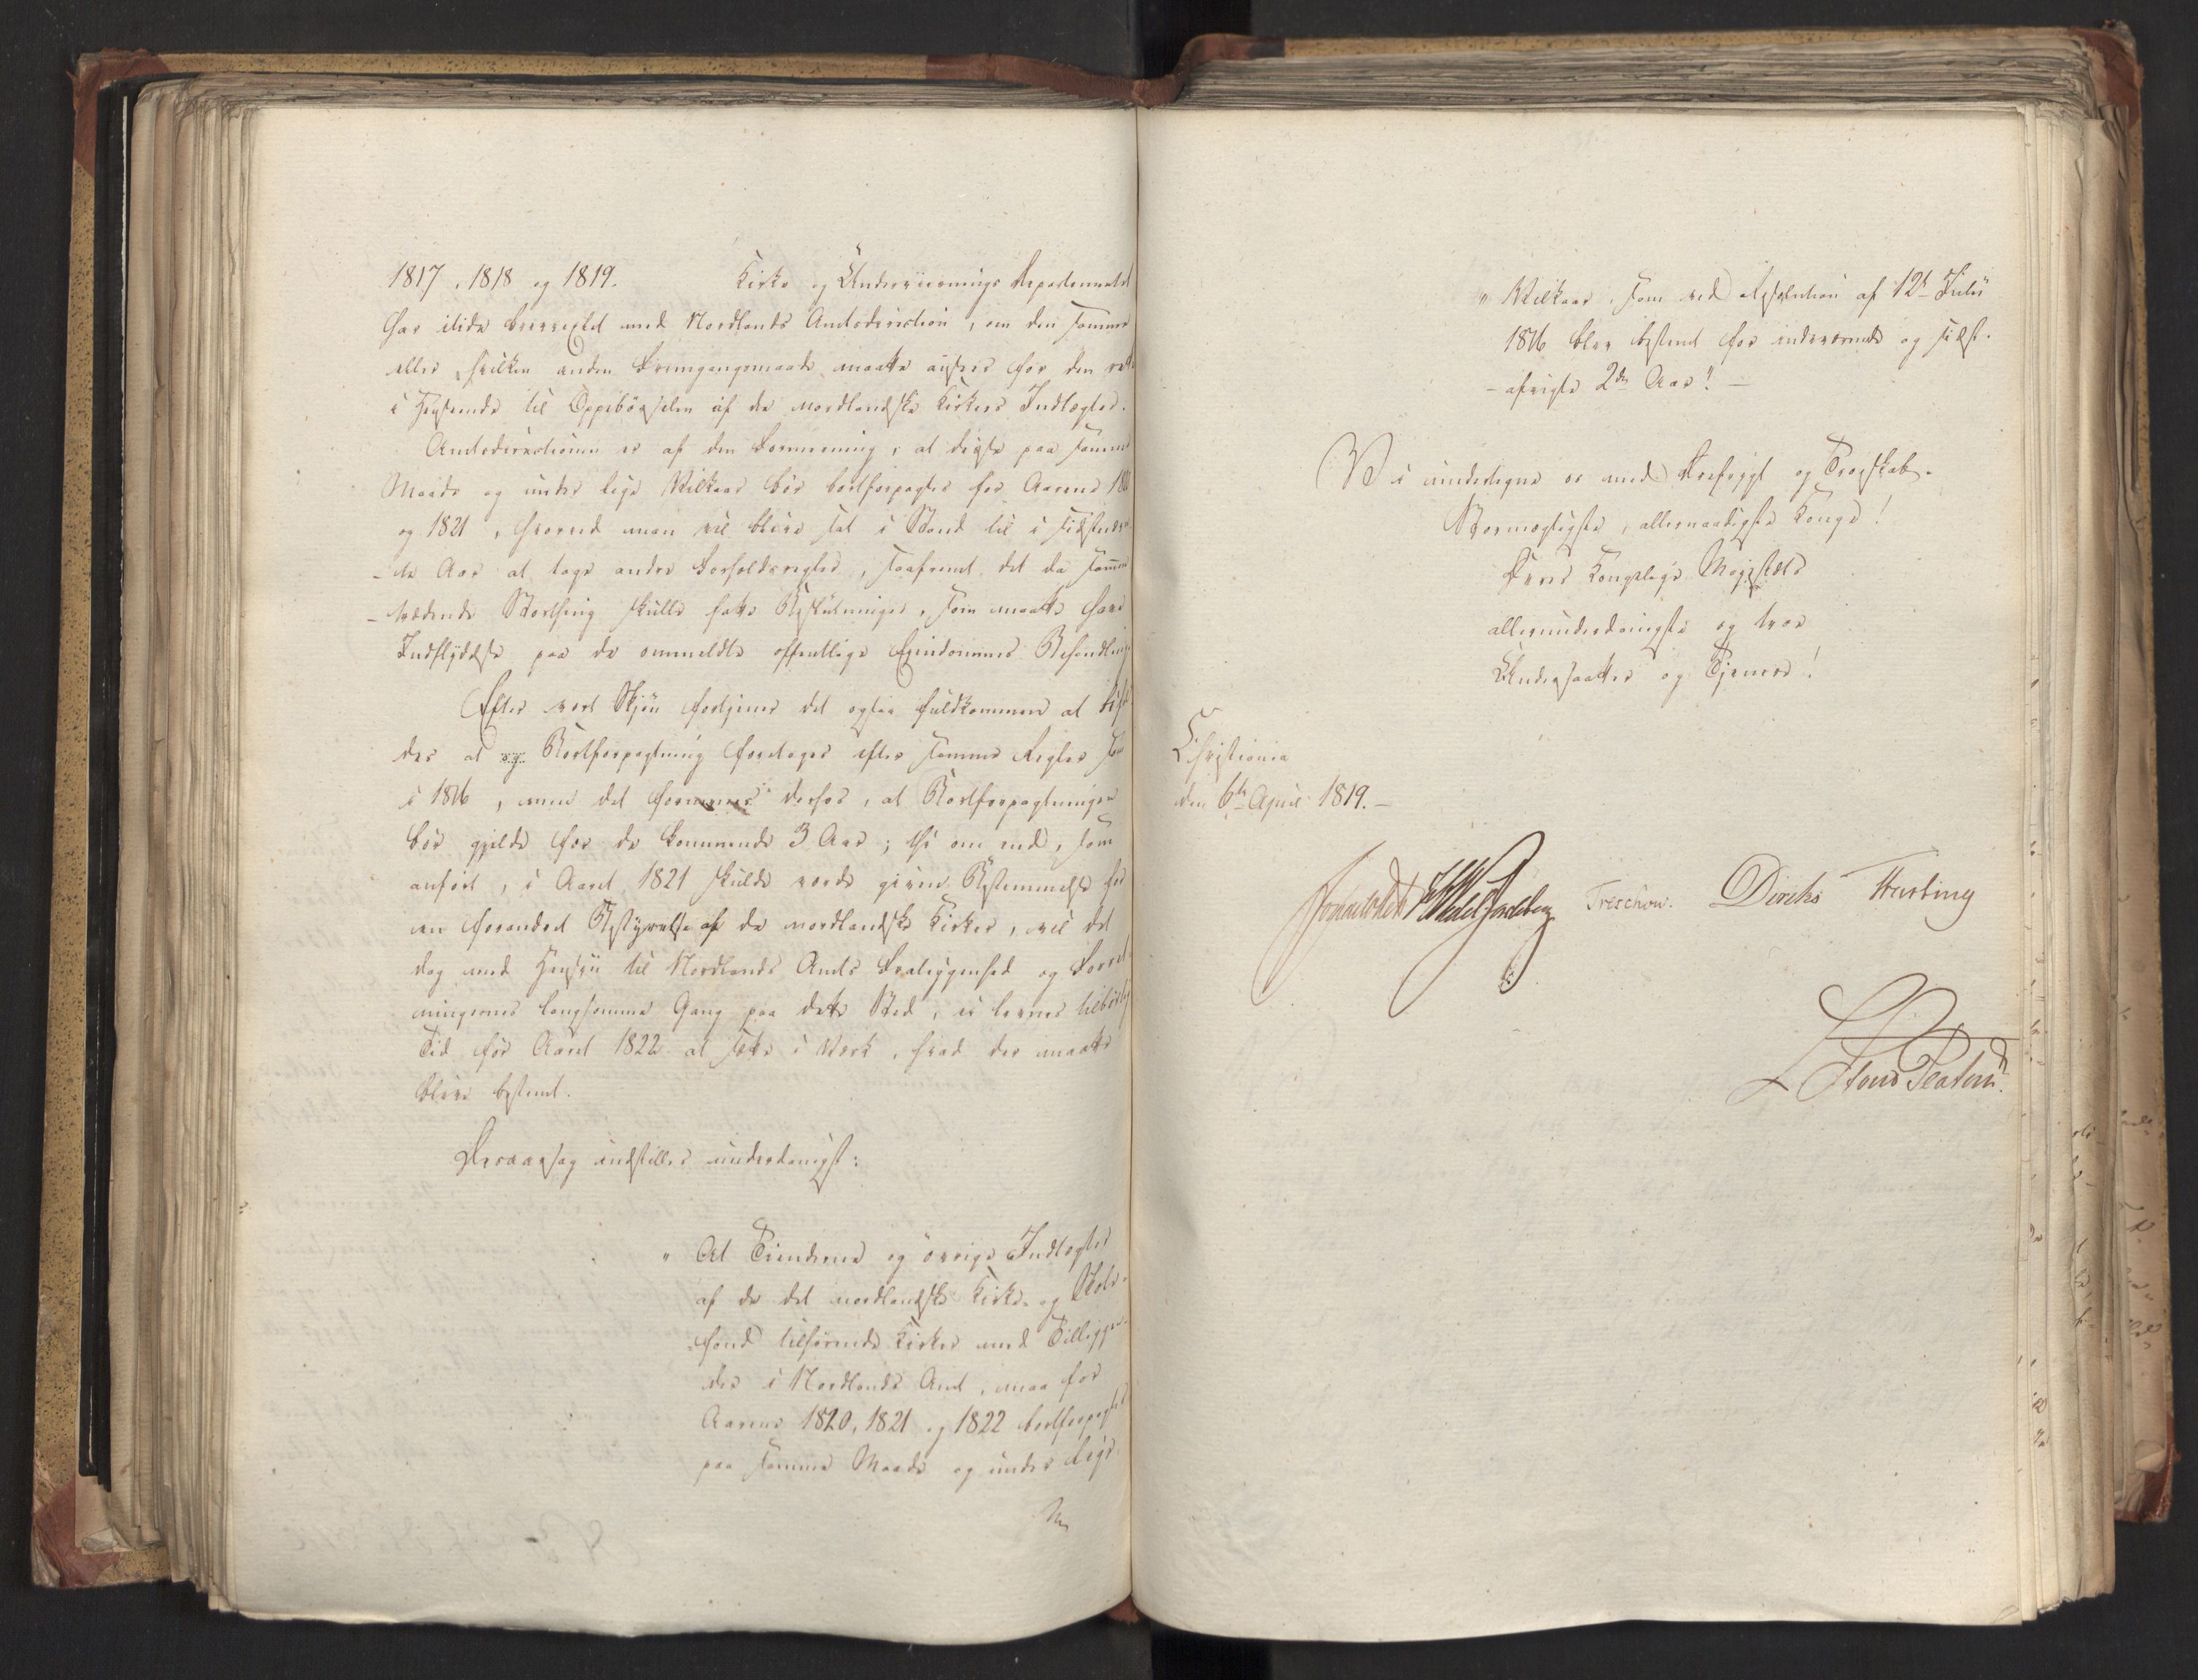 1817, 1818 og 1819. Kirke og Underviisnings Departementet
har itide brevvexlet med Nordlands Amtsdirection, om den samme
eller hvilken anden Fremgangsmaade maatte ansees for den rette
i Henseende til Oppebørselen af de nordlandske Kirkers Indtægter.
Amtsdirectionen er af den Formeening, at disse paa samme
Maade og under lige Vilkaar bør bortforpagtes for Aarene 18
og 1821, hvorved man vil blive sat i Stand til i sidstnævn-
-te Aar at tage andre Forholdsregler, saafremt det da sammen-
-trædende Storthing skulde fatte Beslutninger, som maatte have
Indflydelse paa de ommeldte offentlige Eiendommes Behandling
Efter vort Skjøn fortjener det ogsaa fuldkommen at bifal
des at Bortforpagtning foretages efter samme Regler som
i 1816, men det formenes derhos, at Bortforpagtningen
bør gjelde for de kommende 3 Aar; thi om end, som
anført, i Aaret 1821 skulde vorde given Bestemmelse for
en forandret Bestyrelse af de nordlandske Kirker, vil det
dog med Hensyn til Nordlands Amts Fraliggenhed og Forret
ningernes langsomme Gang paa dette Sted, ei levnes tilbørlig
Tid før Aaret 1822 at sætte i Værk, hvad der maatte
blive bestemt.
Desaarsag indstilles underdanigst:
" At Tienderne og øvrige Indtægter
af de det nordlandske Kirke- og Skole-
fond tilhørende Kirker med Tilliggen-
der i Nordlands Amt, maa for
Aarene 1820, 1821 og 1822 bortforpagtes
paa samme Maade og under lige
" Vilkaar, som ved Resolution af 12te Julii
1816 blev bestemt for indeværende og sidst-
- afvigte 2de Aar!" —
Vi undertegne os med Ærefrygt og Troskab.
Stormægtigste, allernaadigste Konge!
Deres Kongelige Majestæts
allerunderdanigste og troe
Undersaatter og Tjenere!
Christiania
den 6te April 1819. —
Sommerhielm Wedel Jarlsberg Treschow. Diriks Fasting
Hans Platou